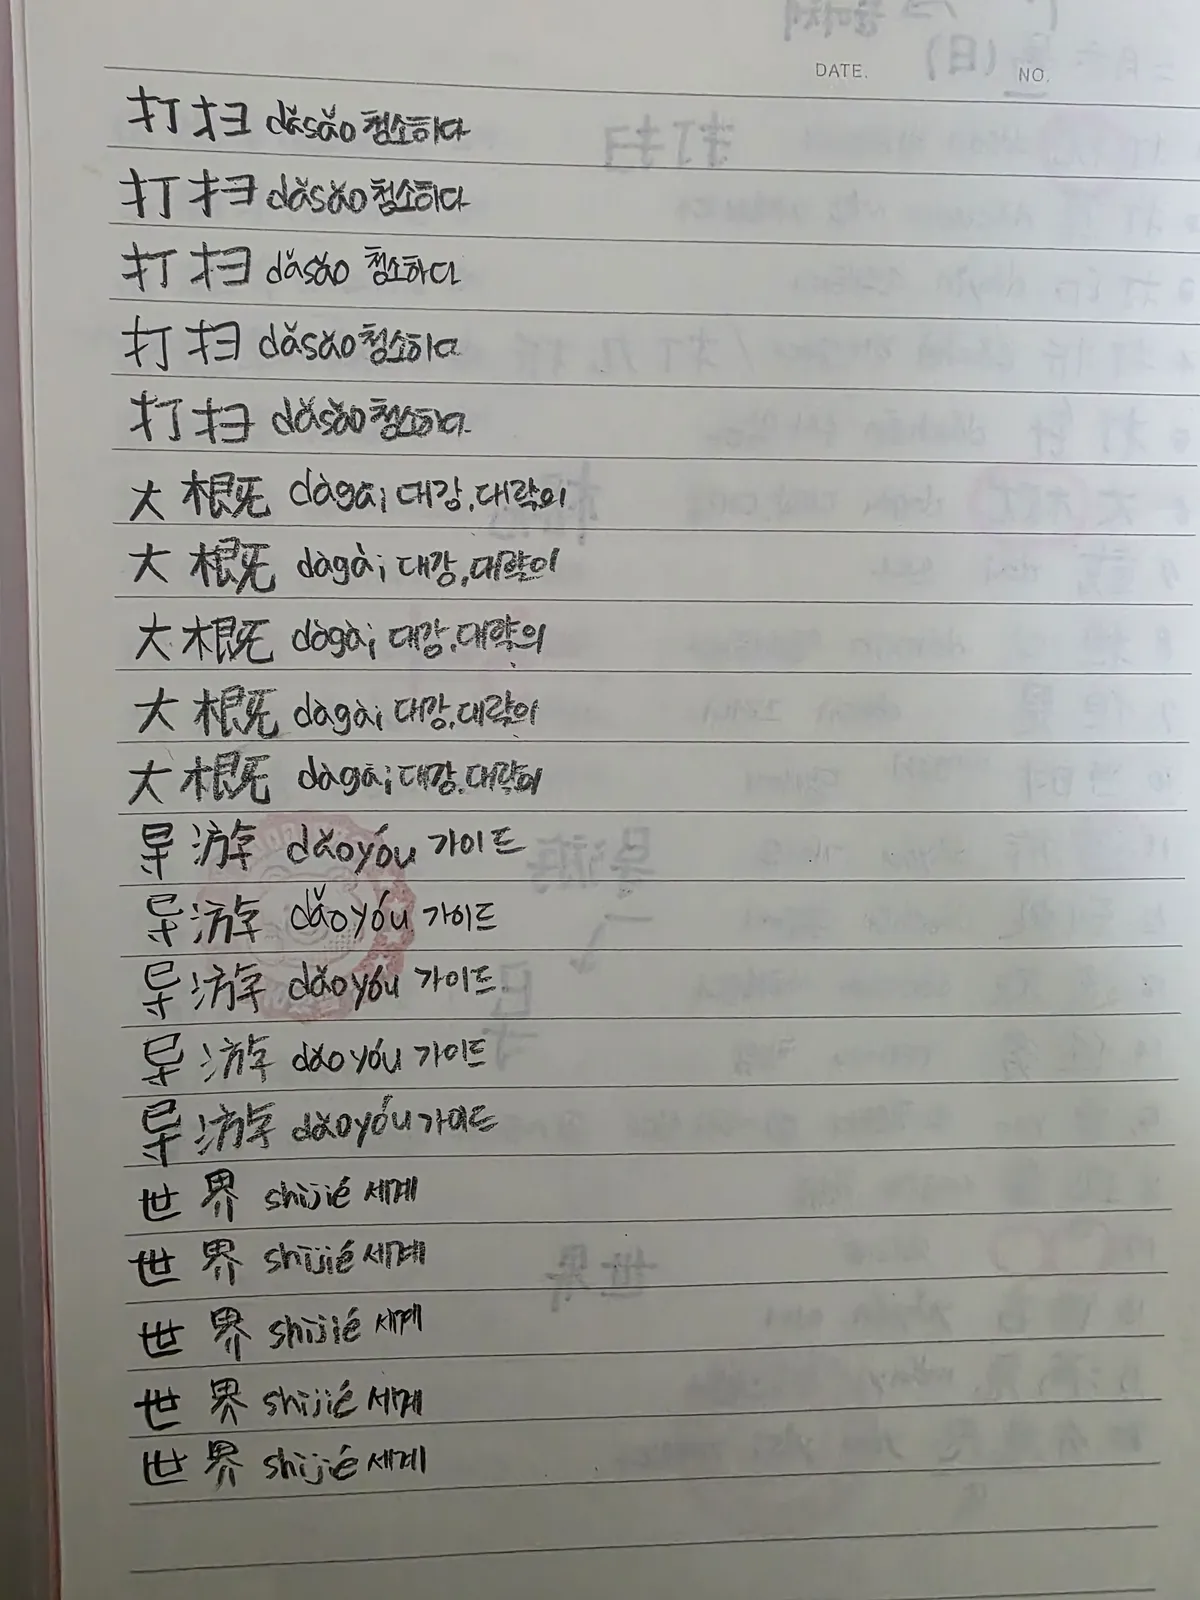 DATE. NO.
打扫 dǎsǎo 청소하다
打扫 dǎsǎo 청소하다
打扫 dǎsǎo 청소하다
打扫 dǎsǎo 청소하다
打扫 dǎsǎo 청소하다
大概 dàgài 대강,대략의
大概 dàgài 대강,대략의
大概 dàgài 대강,대략의
大概 dàgài 대강,대략의
大概 dàgài 대강,대략의
导游 dǎoyóu 가이드
导游 dǎoyóu 가이드
导游 dǎoyóu 가이드
导游 dǎoyóu 가이드
导游 dǎoyóu 가이드
世界 shìjié 세계
世界 shìjié 세계
世界 shìjié 세계
世界 shìjié 세계
世界 shìjié 세계